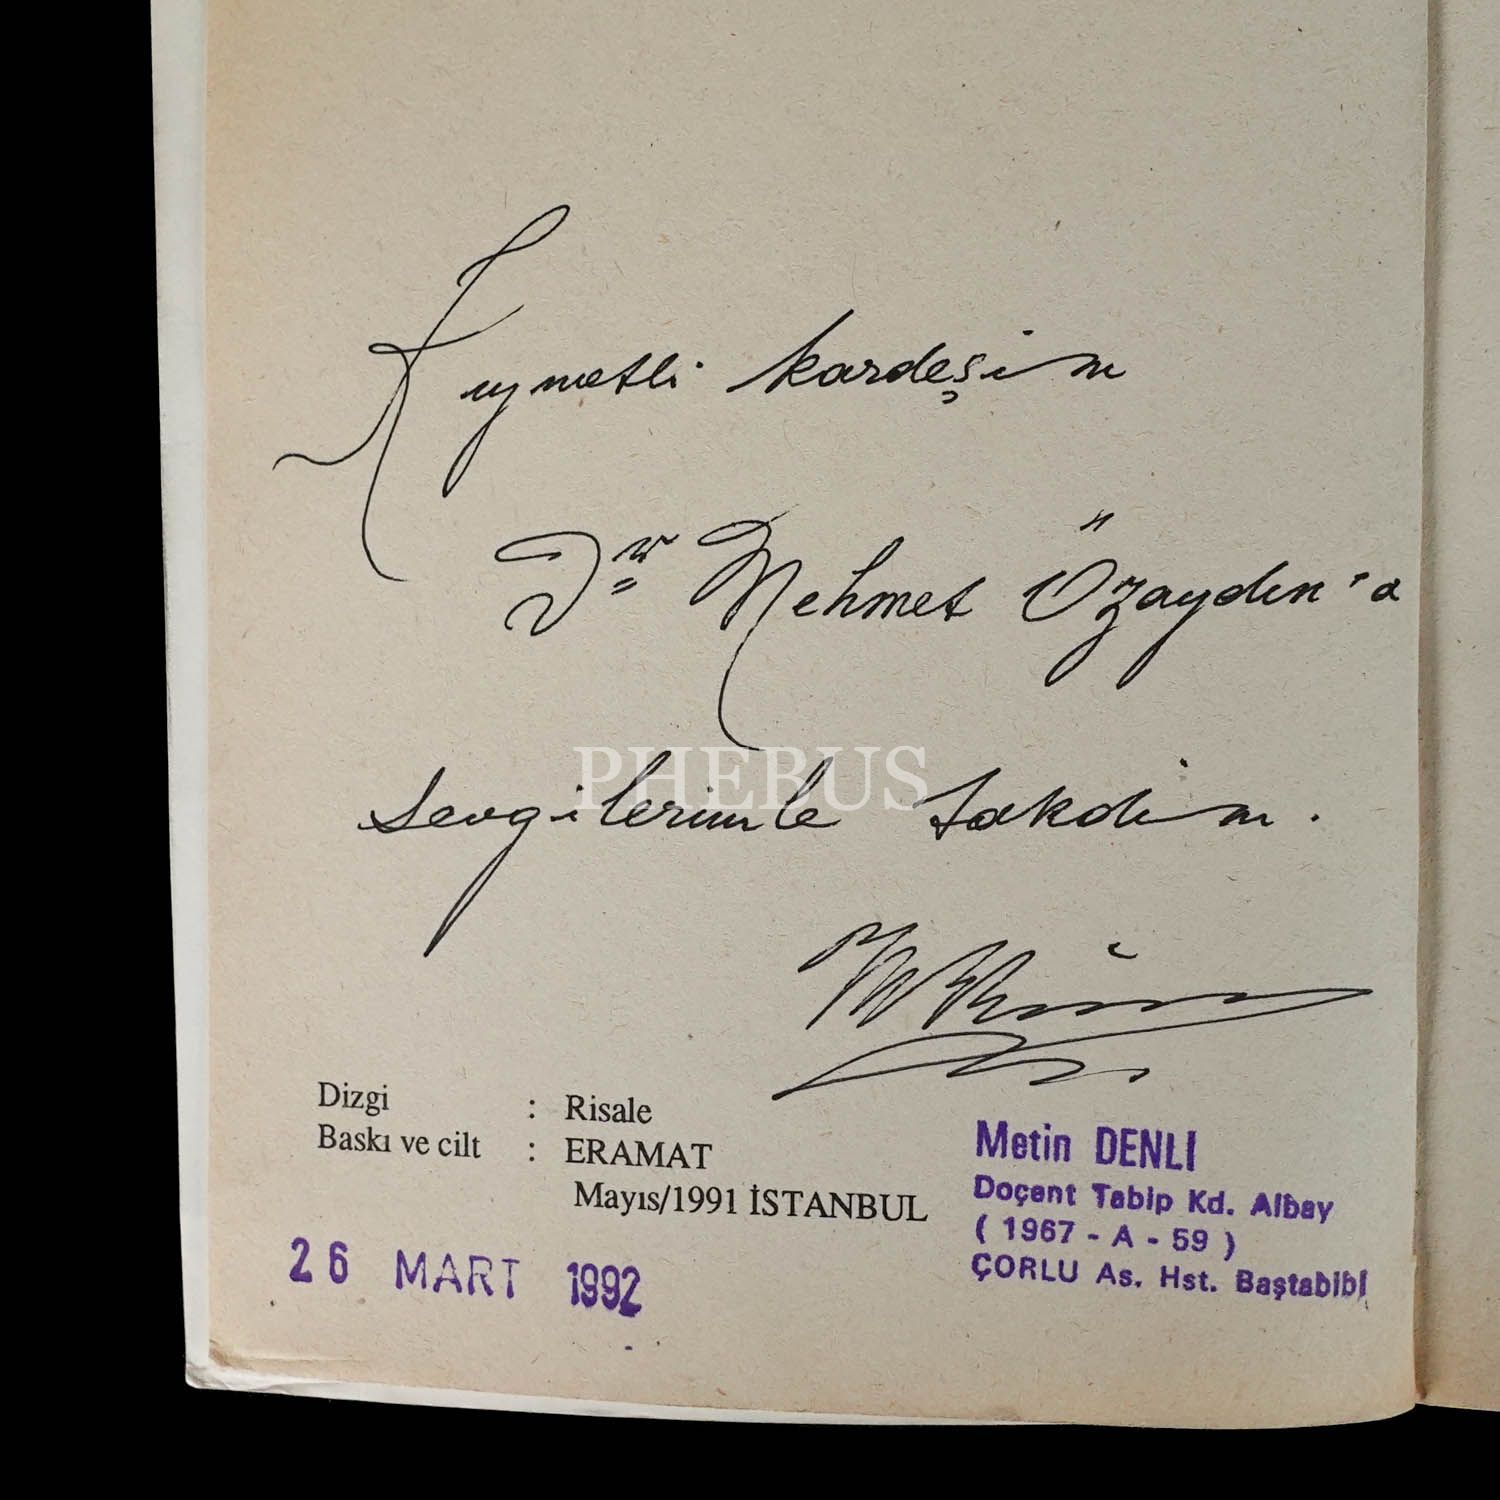 Kıymetli kardeşim
Dr Mehmet Özaydın'a
PHEBUS
Sevgilerimle takdim.
Dizgi : Risale
Baskı ve cilt : ERAMAT
Mayıs/1991 İSTANBUL
26 MART 1992
Metin DENLI
Doçent Tabip Kd. Albay
( 1967 - A - 59 )
ÇORLU As. Hst. Baştabibi